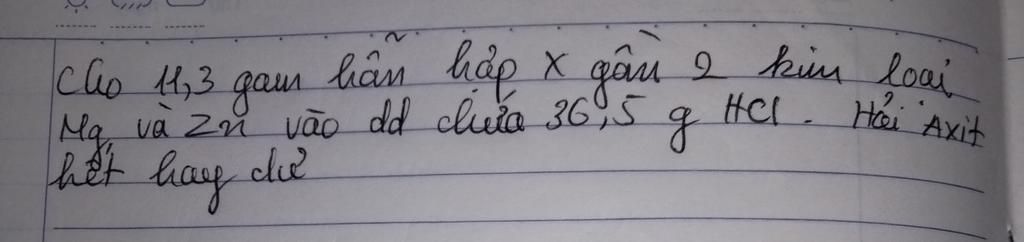 Cho 11,3 gam hỗn hợp X gồm 2 kim loại
Mg và Zn vào dd chứa 36,5 g HCl. Hỏi Axit
hết hay dư